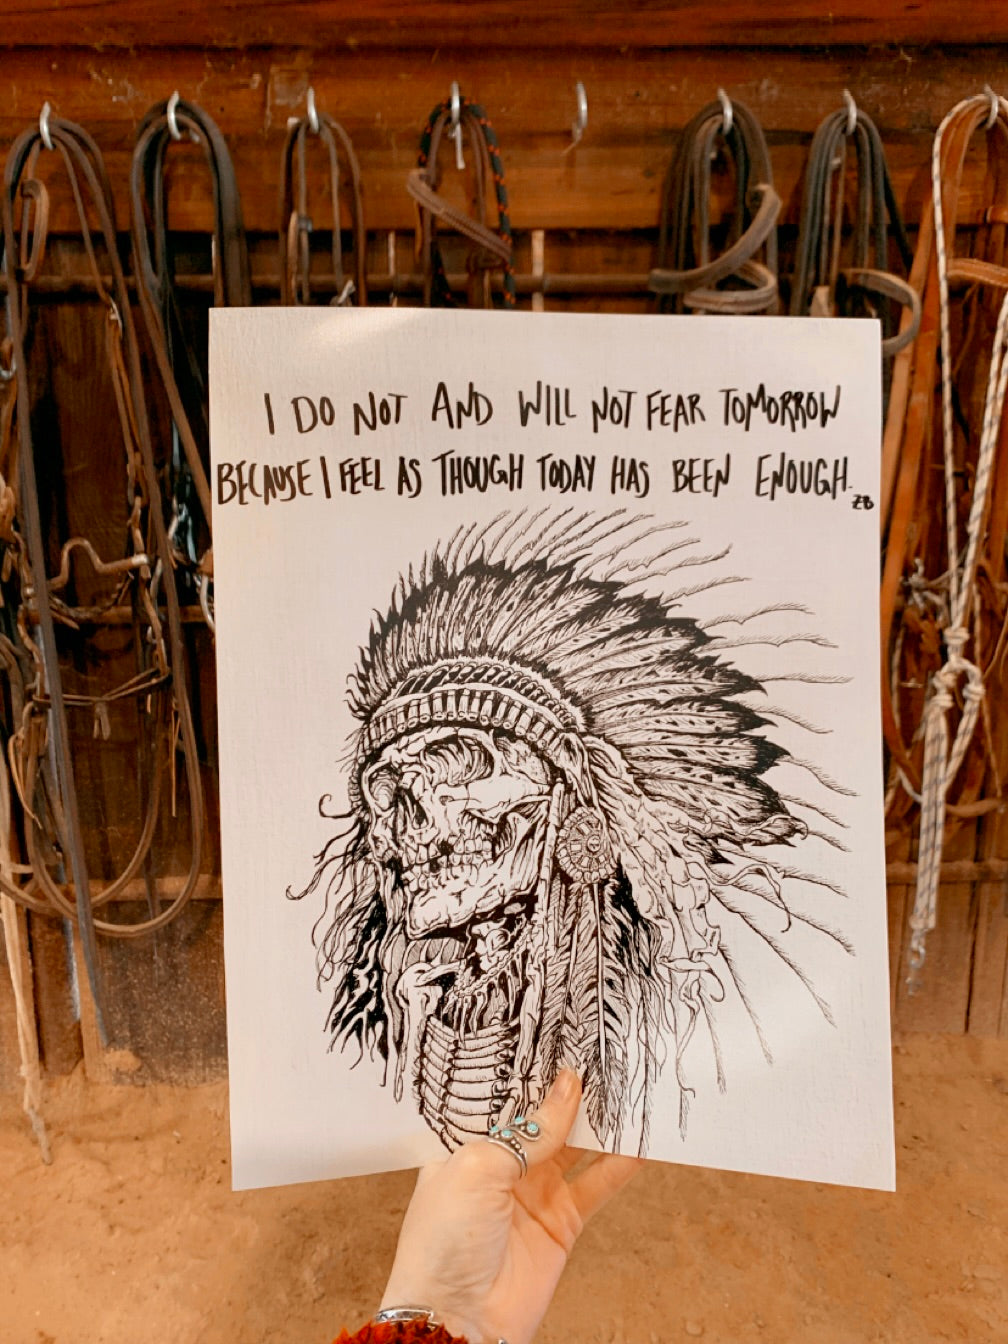 I DO NOT AND WILL NOT FEAR TOMORROW
BECAUSE I FEEL AS THOUGH TODAY HAS BEEN ENOUGH.
ZB